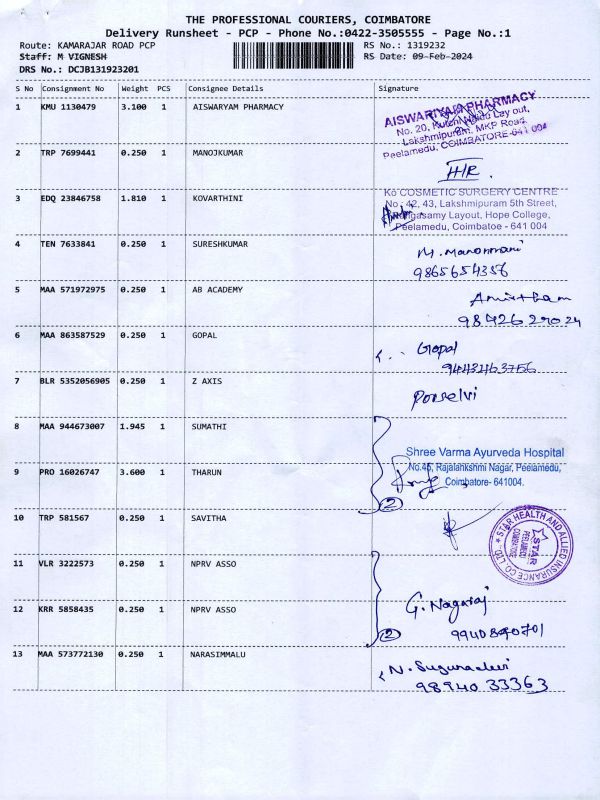 THE PROFESSIONAL COURIERS, COIMBATORE
Delivery Runsheet - PCP - Phone No.:0422-3505555 - Page No.:1
Route: KAMARAJAR ROAD PCP
RS No.: 1319232
Staff: M VIGNESH
RS Date: 09-Feb-2024
DRS No.: DCJB131923201
S No Consignment No Weight PCS Consignee Details Signature
1 KMU 1130479 3.100 1 AISWARYAM PHARMACY
AISWARIYAM PHARMACY
No. 20, Lay out,
Lakshmipuram, MKP Road,
Peelamedu, COIMBATORE-641 004
2 TRP 7699441 0.250 1 MANOJKUMAR
H/R.
3 EDQ 23846758 1.810 1 KOVARTHINI
COSMETIC SURGERY CENTRE
No: 42, 43, Lakshmipuram 5th Street,
Rengasamy Layout, Hope College,
Peelamedu, Coimbatoe - 641 004
4 TEN 7633841 0.250 1 SURESHKUMAR
M. Manonmani
9865654356
5 MAA 571972975 0.250 1 AB ACADEMY
Amirtham
9842629024
6 MAA 863587529 0.250 1 GOPAL
Gopal
9443463756
7 BLR 5352056905 0.250 1 Z AXIS
Ponselvi
8 MAA 944673007 1.945 1 SUMATHI
Shree Varma Ayurveda Hospital
No.45, Rajalahkshmi Nagar, Peelamedu,
Coimbatore- 641004.
9 PRO 16026747 3.600 1 THARUN
2
10 TRP 581567 0.250 1 SAVITHA
STAR HEALTH AND ALLIED INSURANCE CO. LTD.
STAR
PEELAMEDU
COIMBATORE
11 VLR 3222573 0.250 1 NPRV ASSO
12 KRR 5858435 0.250 1 NPRV ASSO
G. Nagaraj
9940890701
2
13 MAA 573772130 0.250 1 NARASIMMALU
N. Sugunadevi
98940 33363